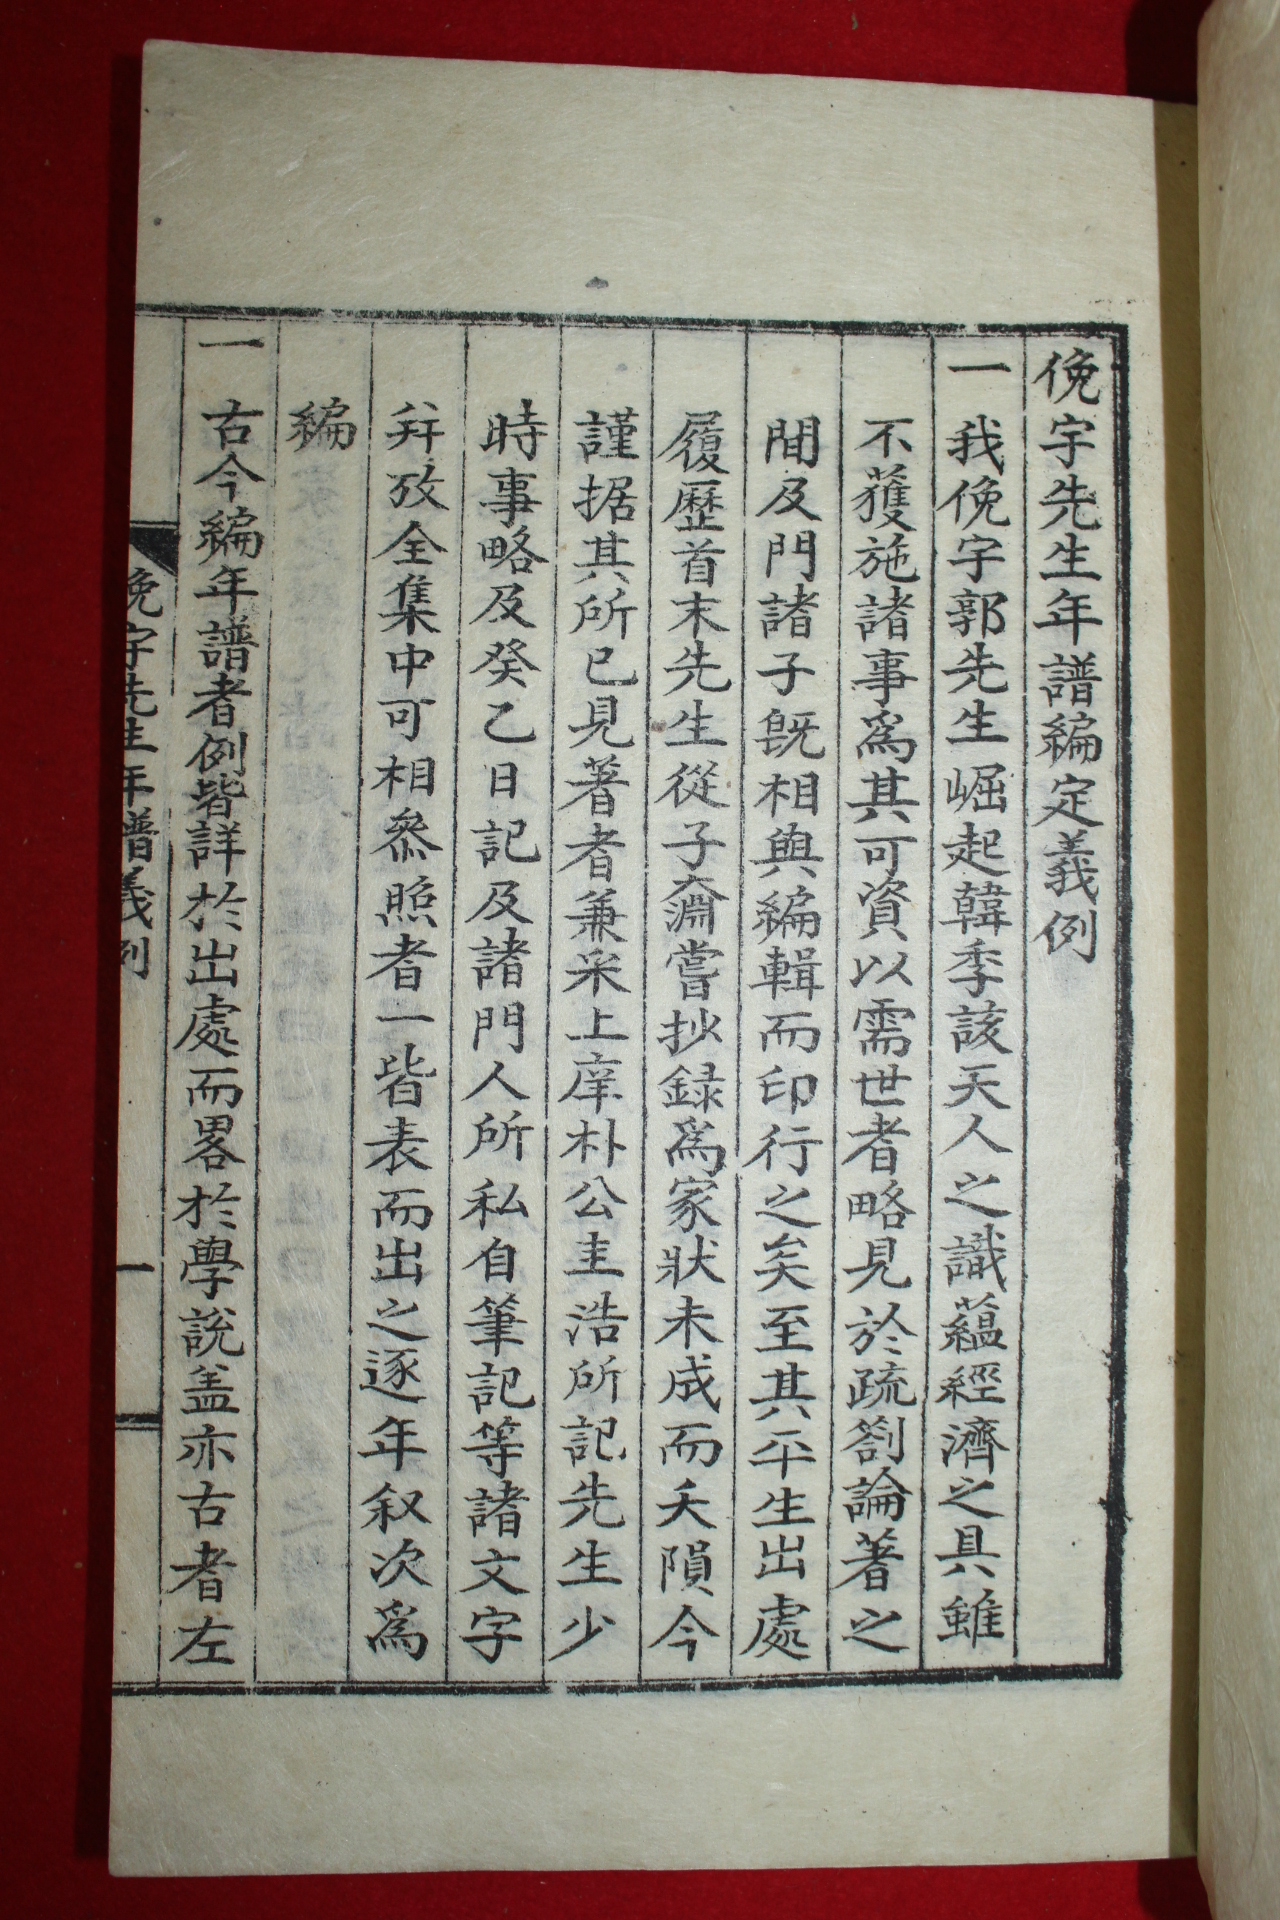 俛宇先生年譜編定義例
一我俛宇郭先生崛起韓季該天人之識蘊經濟之具雖
不獲施諸事爲其可資以需世者略見於疏劄論著之
間及門諸子旣相與編輯而印行之矣至其平生出處
履歷首末先生從子奫嘗抄録爲家狀未成而夭隕今
謹据其所已見著者兼采上庠朴公圭浩所記先生少
時事略及癸乙日記及諸門人所私自筆記等諸文字
幷攷全集中可相叅照者一皆表而出之逐年叙次爲
編
一古今編年譜者例皆詳於出處而畧於學說盖亦古者左
俛宇先生年譜義例
一